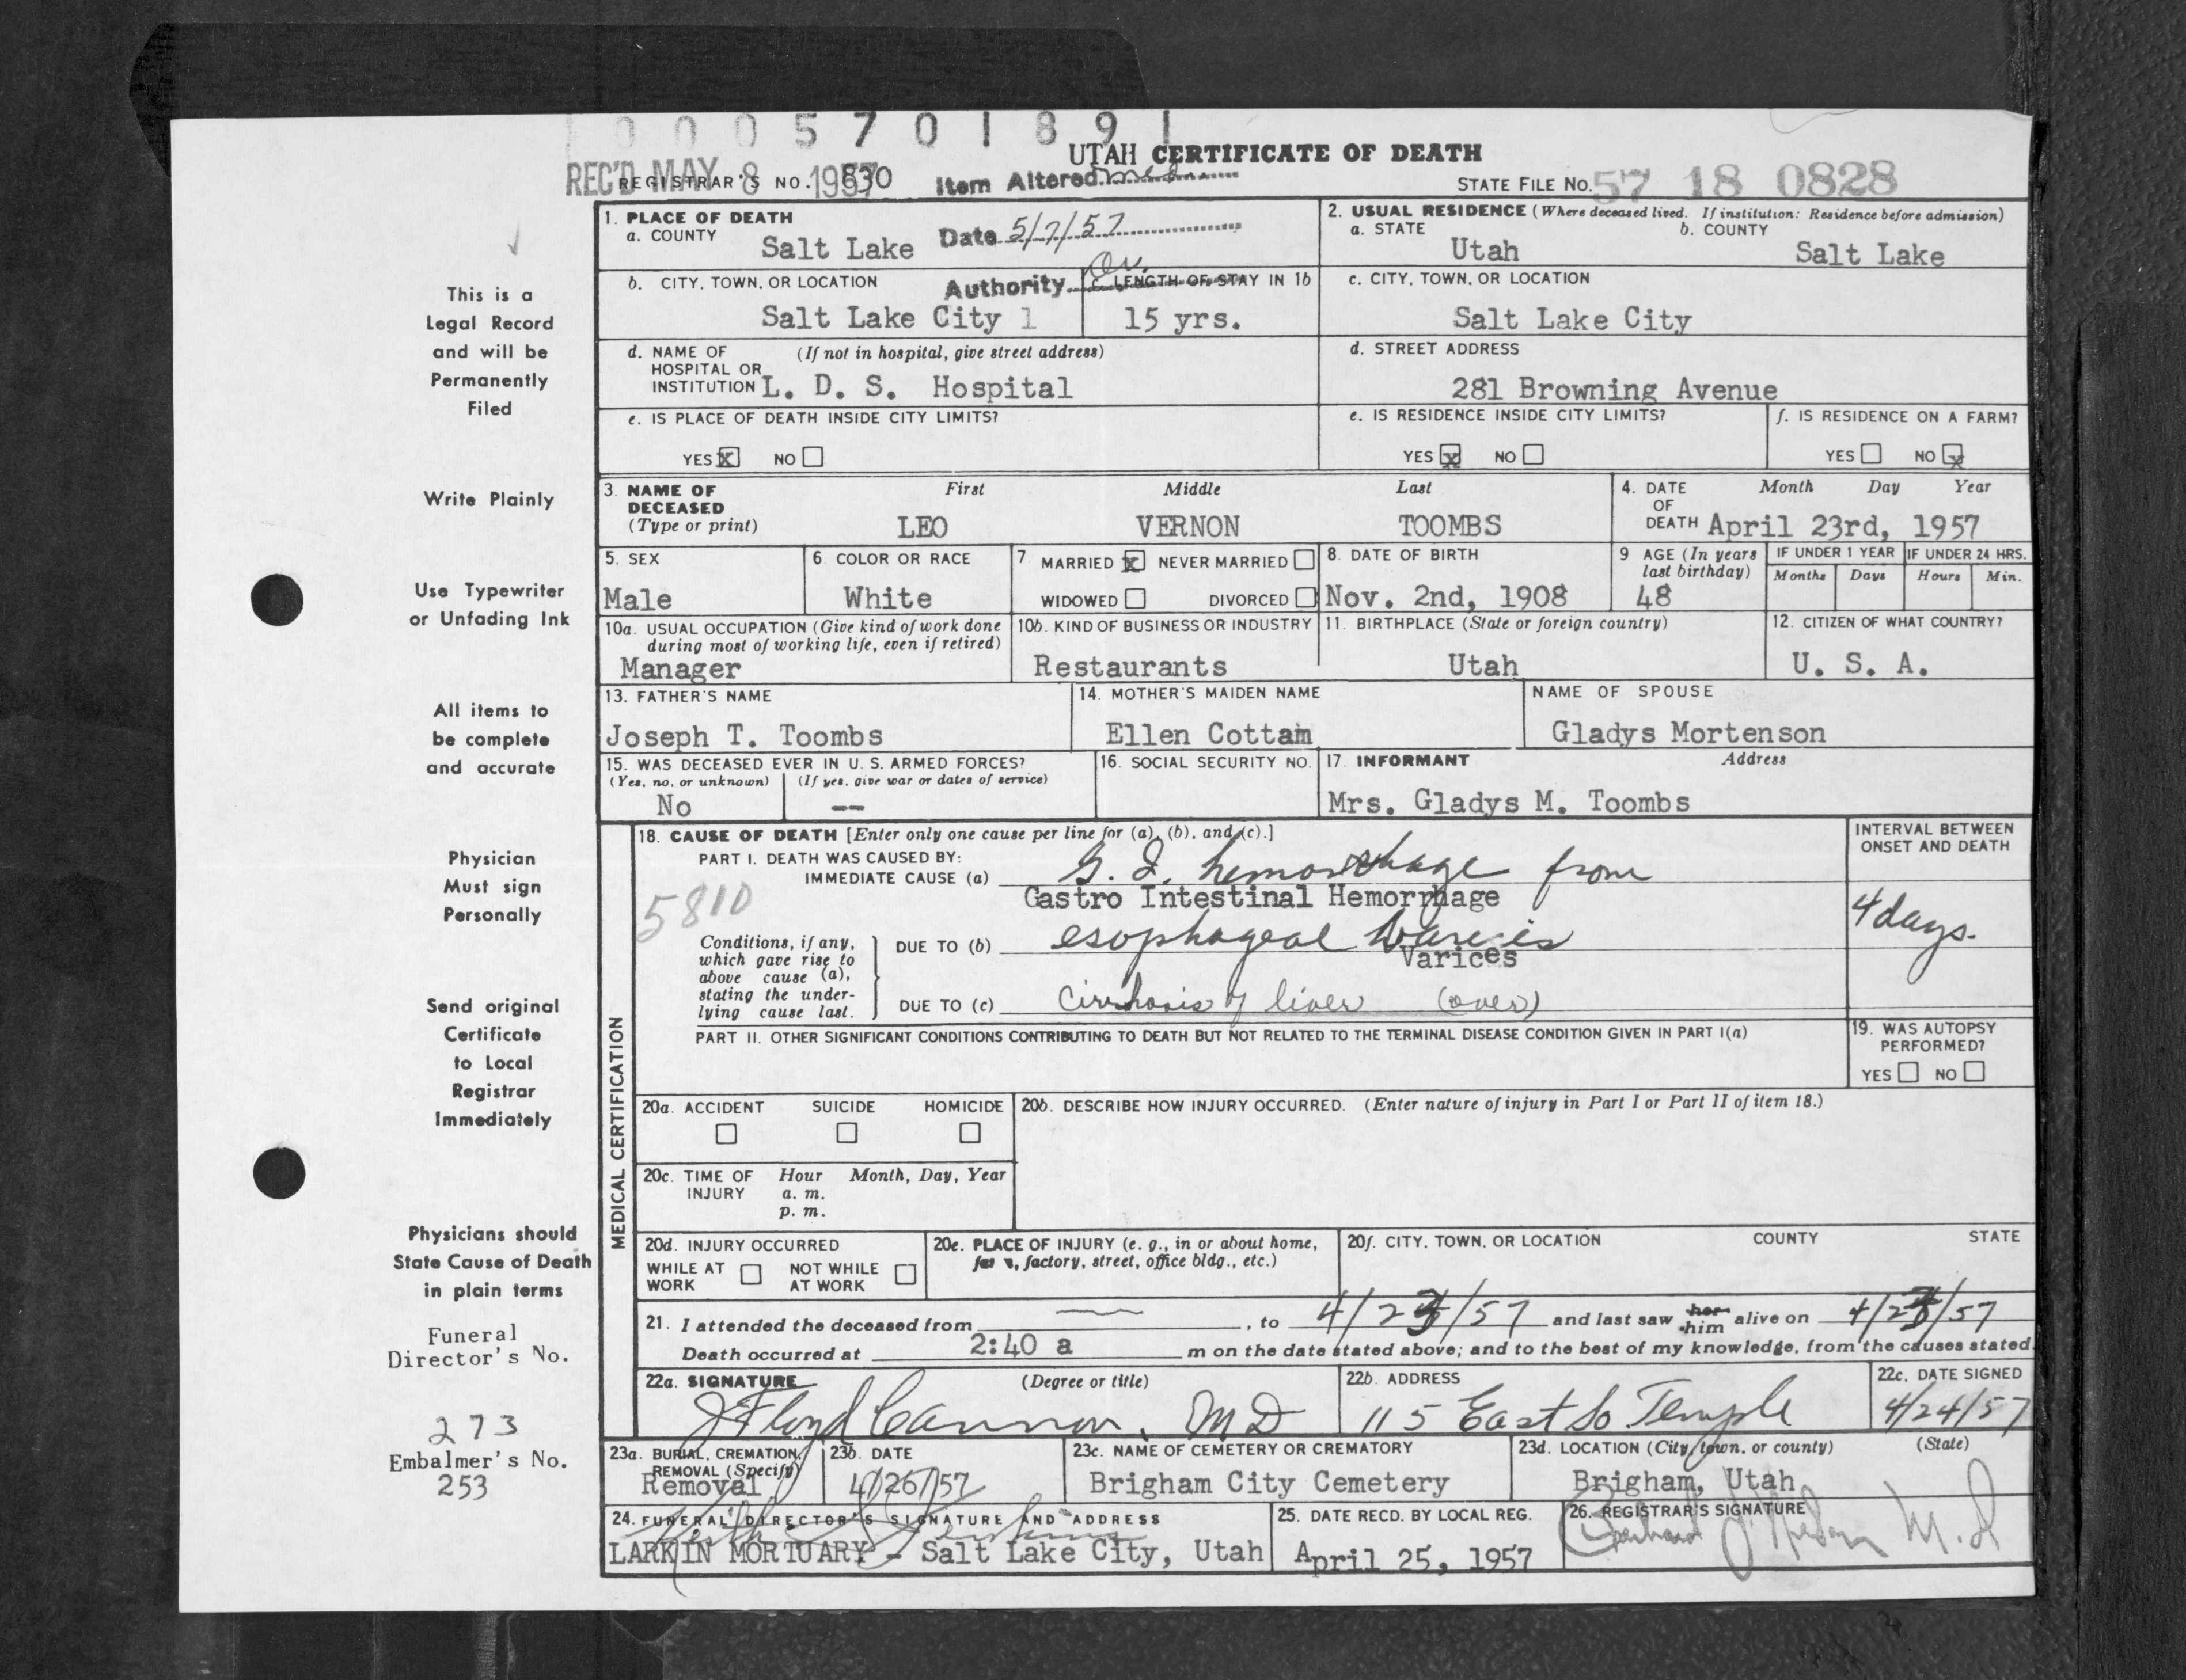 0 0 0 5 7 0 1 8 9 1
UTAH CERTIFICATE OF DEATH
REC'D MAY 8 1957
REGISTRAR'S NO. 830
Item Altered
STATE FILE NO. 57 18 0828
1. PLACE OF DEATH
a. COUNTY
Salt Lake
Date 5/7/57
2. USUAL RESIDENCE (Where deceased lived. If institution: Residence before admission)
a. STATE
Utah
b. COUNTY
Salt Lake
b. CITY, TOWN, OR LOCATION
Salt Lake City 1
Authority
c. LENGTH OF STAY IN 1b
15 yrs.
c. CITY, TOWN, OR LOCATION
Salt Lake City
d. NAME OF (If not in hospital, give street address)
HOSPITAL OR
INSTITUTION L. D. S. Hospital
d. STREET ADDRESS
281 Browning Avenue
e. IS PLACE OF DEATH INSIDE CITY LIMITS?
YES X NO
e. IS RESIDENCE INSIDE CITY LIMITS?
YES X NO
f. IS RESIDENCE ON A FARM?
YES NO X
3. NAME OF DECEASED
(Type or print)
First Middle Last
LEO VERNON TOOMBS
4. DATE OF DEATH
Month Day Year
April 23rd, 1957
5. SEX
Male
6. COLOR OR RACE
White
7. MARRIED X NEVER MARRIED
WIDOWED DIVORCED
8. DATE OF BIRTH
Nov. 2nd, 1908
9 AGE (In years
last birthday)
48
IF UNDER 1 YEAR
Months Days
IF UNDER 24 HRS.
Hours Min.
10a. USUAL OCCUPATION (Give kind of work done
during most of working life, even if retired)
Manager
10b. KIND OF BUSINESS OR INDUSTRY
Restaurants
11. BIRTHPLACE (State or foreign country)
Utah
12. CITIZEN OF WHAT COUNTRY?
U. S. A.
13. FATHER'S NAME
Joseph T. Toombs
14. MOTHER'S MAIDEN NAME
Ellen Cottam
NAME OF SPOUSE
Gladys Mortenson
15. WAS DECEASED EVER IN U. S. ARMED FORCES?
(Yes, no, or unknown) (If yes, give war or dates of service)
No --
16. SOCIAL SECURITY NO.
17. INFORMANT Address
Mrs. Gladys M. Toombs
MEDICAL CERTIFICATION
18. CAUSE OF DEATH [Enter only one cause per line for (a), (b), and (c).]
PART I. DEATH WAS CAUSED BY:
IMMEDIATE CAUSE (a) G. I. hemorrhage from
Gastro Intestinal Hemorrhage
5810
Conditions, if any,
which gave rise to
above cause (a),
stating the under-
lying cause last.
DUE TO (b) esophageal
Varices
DUE TO (c) Cirrhosis of liver (over)
INTERVAL BETWEEN
ONSET AND DEATH
4 days.
PART II. OTHER SIGNIFICANT CONDITIONS CONTRIBUTING TO DEATH BUT NOT RELATED TO THE TERMINAL DISEASE CONDITION GIVEN IN PART I(a)
19. WAS AUTOPSY
PERFORMED?
YES NO
20a. ACCIDENT SUICIDE HOMICIDE
20b. DESCRIBE HOW INJURY OCCURRED. (Enter nature of injury in Part I or Part II of item 18.)
20c. TIME OF INJURY
Hour Month, Day, Year
a. m.
p. m.
20d. INJURY OCCURRED
WHILE AT WORK NOT WHILE AT WORK
20e. PLACE OF INJURY (e. g., in or about home,
factory, street, office bldg., etc.)
20f. CITY, TOWN, OR LOCATION COUNTY STATE
21. I attended the deceased from , to 4/23/57 and last saw her him alive on 4/23/57
Death occurred at 2:40 a m on the date stated above; and to the best of my knowledge, from the causes stated.
22a. SIGNATURE (Degree or title)
J Floyd Cannon, MD
22b. ADDRESS
115 East So Temple
22c. DATE SIGNED
4/24/57
23a. BURIAL, CREMATION,
REMOVAL (Specify)
Removal
23b. DATE
4/26/57
23c. NAME OF CEMETERY OR CREMATORY
Brigham City Cemetery
23d. LOCATION (City, town, or county) (State)
Brigham, Utah
24. FUNERAL DIRECTOR'S SIGNATURE AND ADDRESS
LARKIN MORTUARY - Salt Lake City, Utah
25. DATE RECD. BY LOCAL REG.
April 25, 1957
26. REGISTRAR'S SIGNATURE
M.D
This is a
Legal Record
and will be
Permanently
Filed
Write Plainly
Use Typewriter
or Unfading Ink
All items to
be complete
and accurate
Physician
Must sign
Personally
Send original
Certificate
to Local
Registrar
Immediately
Physicians should
State Cause of Death
in plain terms
Funeral
Director's No.
273
Embalmer's No.
253